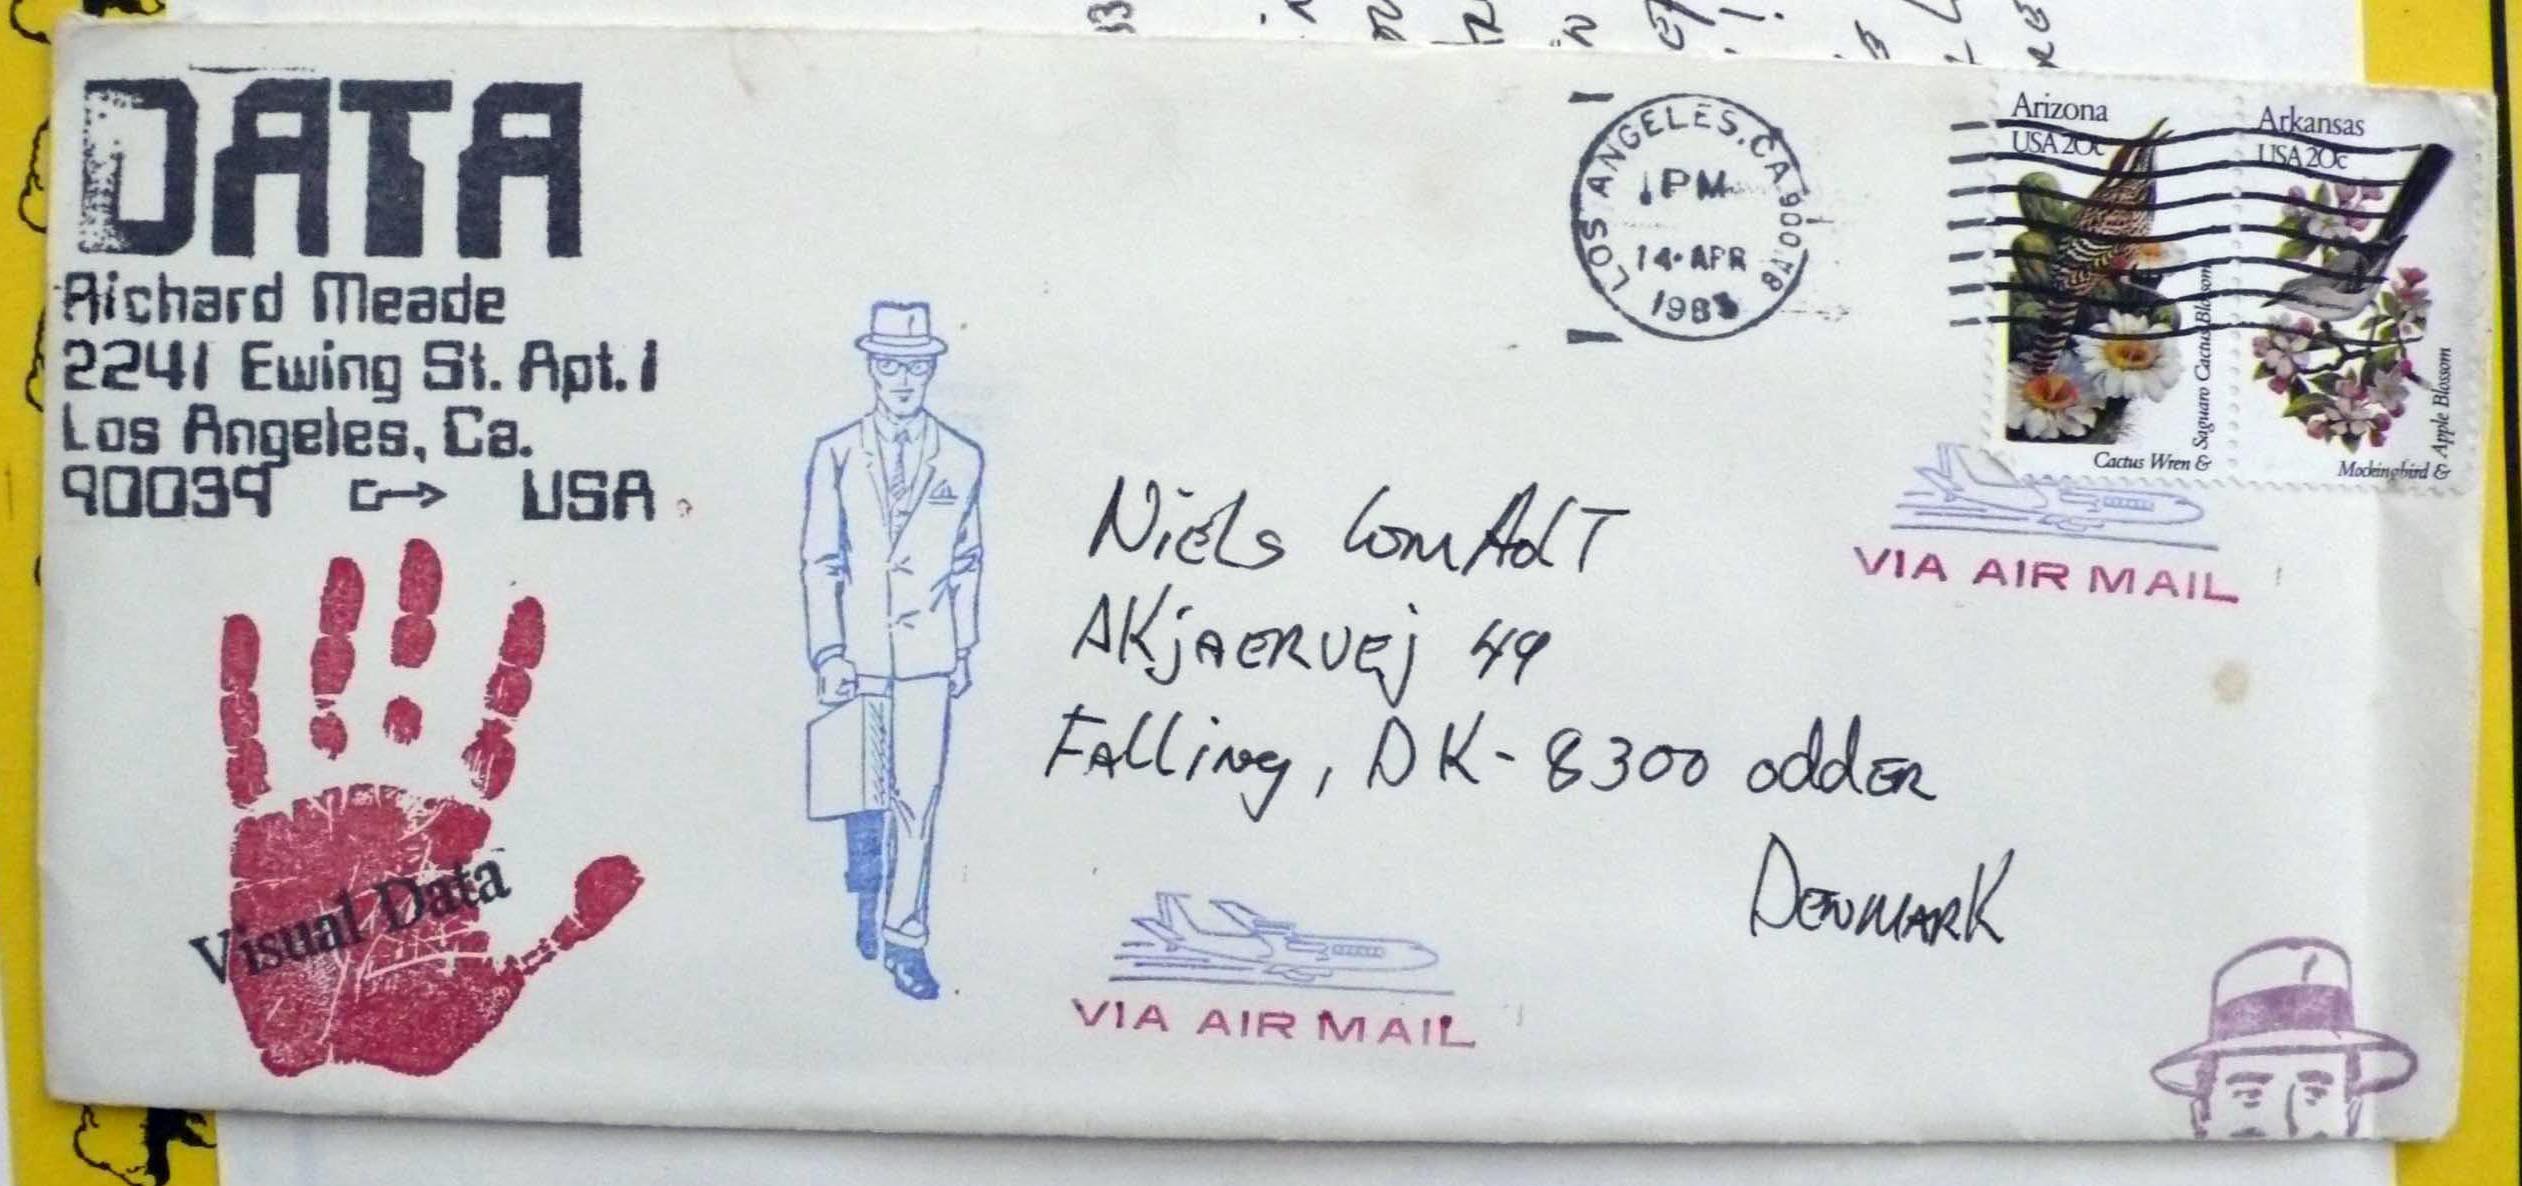 DATA
Richard Meade
2241 Ewing St. Apt. 1
Los Angeles, Ca.
90039 USA
Visual Data
LOS ANGELES, CA 900
1PM
14 APR
1983
Arizona
USA 20c
Saguaro Cactus Blossom
Cactus Wren &
Arkansas
USA 20c
Apple Blossom
Mockingbird &
VIA AIR MAIL
Niels LomAdT
AKjAERVEj 49
FAlling, DK-8300 OddER
DENMARK
VIA AIR MAIL